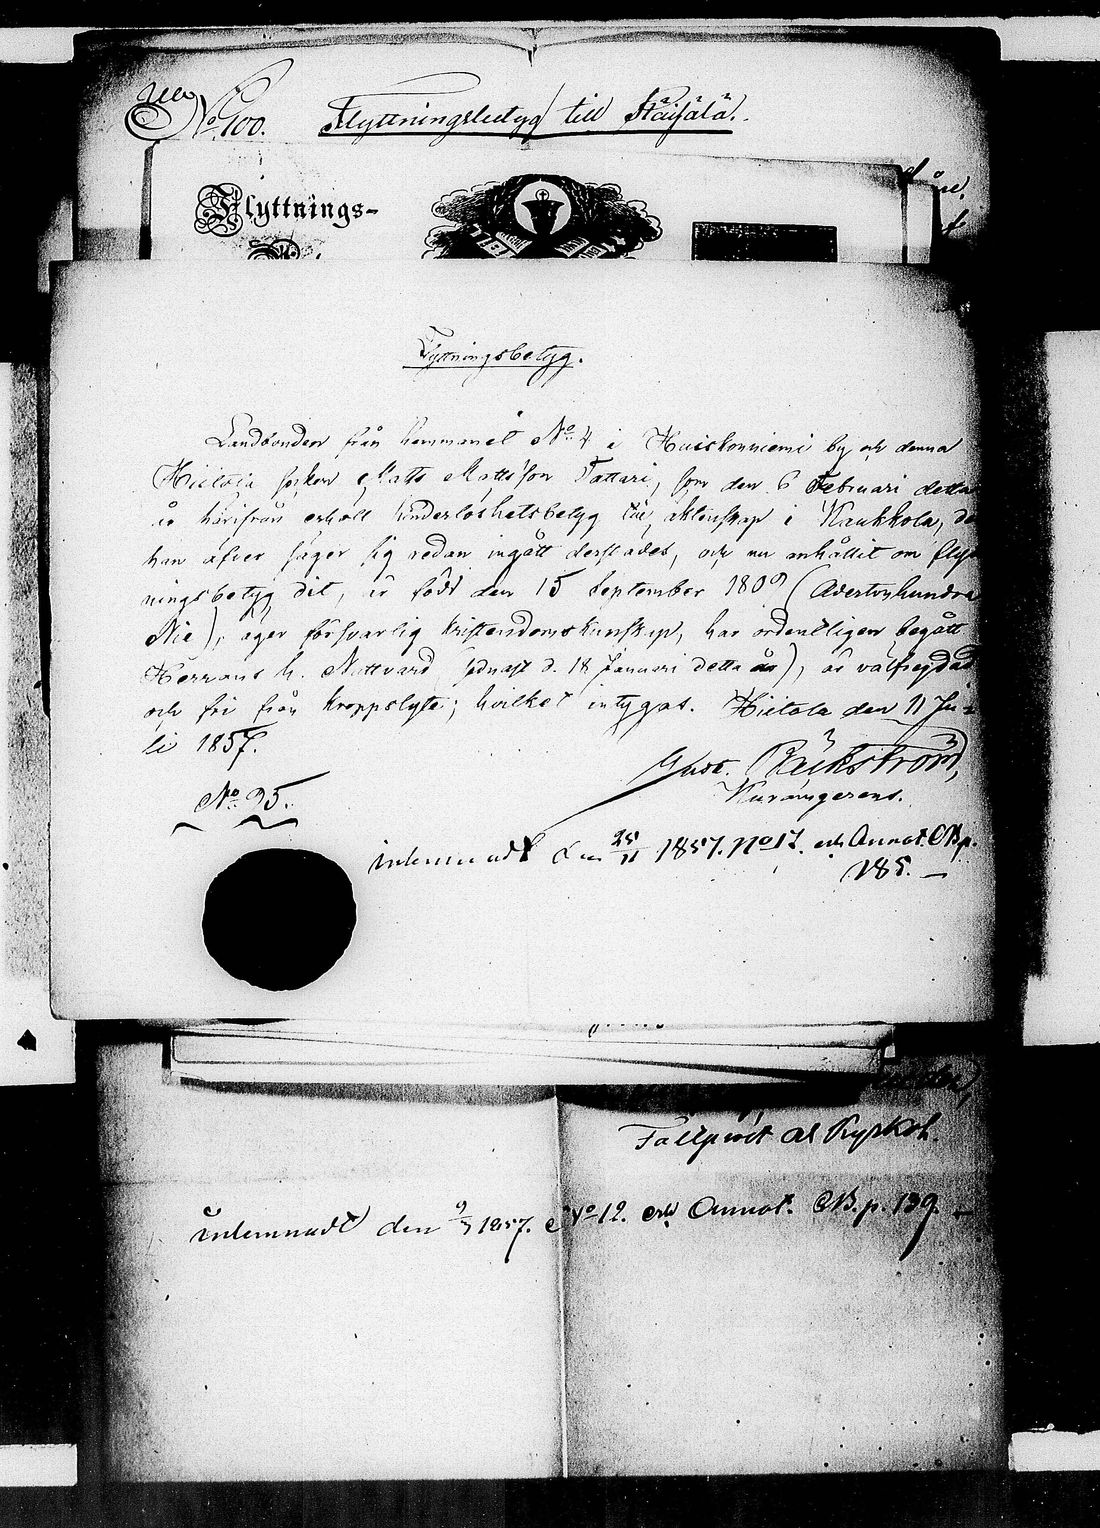 No 100. Flyttningsbetyg till Räisälä.
Flyttnings-
Flyttningsbetyg.
Landbonden från hemmanet No 4 i Haiskonniemi by och denna
Hiitola socken Matts Mattsson Tattari, som den 6 Februari detta
år härifrån erhöll hinderlöshetsbetyg till äktenskap i Kaukkola, det
han äfver säger sig redan ingått derstädes, och nu anhållit om flytt
ningsbetyg dit, är född den 15 September 1809 (Adertonhundra
Nie), äger försvarlig kristendomskunskap, har ordentligen begått
Herrans h. Nattvard (sednast d. 18 Januari detta år), är välfrejdad
och fri från kroppslyte; hvilket intygas. Hiitola den 11 Ju-
li 1857.
Gust. Bäckström,
No 95.
inlemnadt den 25/11 1857. No 17. och Annot. CB p.
185. —
Tallqvist
inlemnadt den 9/3 1857. No 12. och Annot. CB. p. 139. —